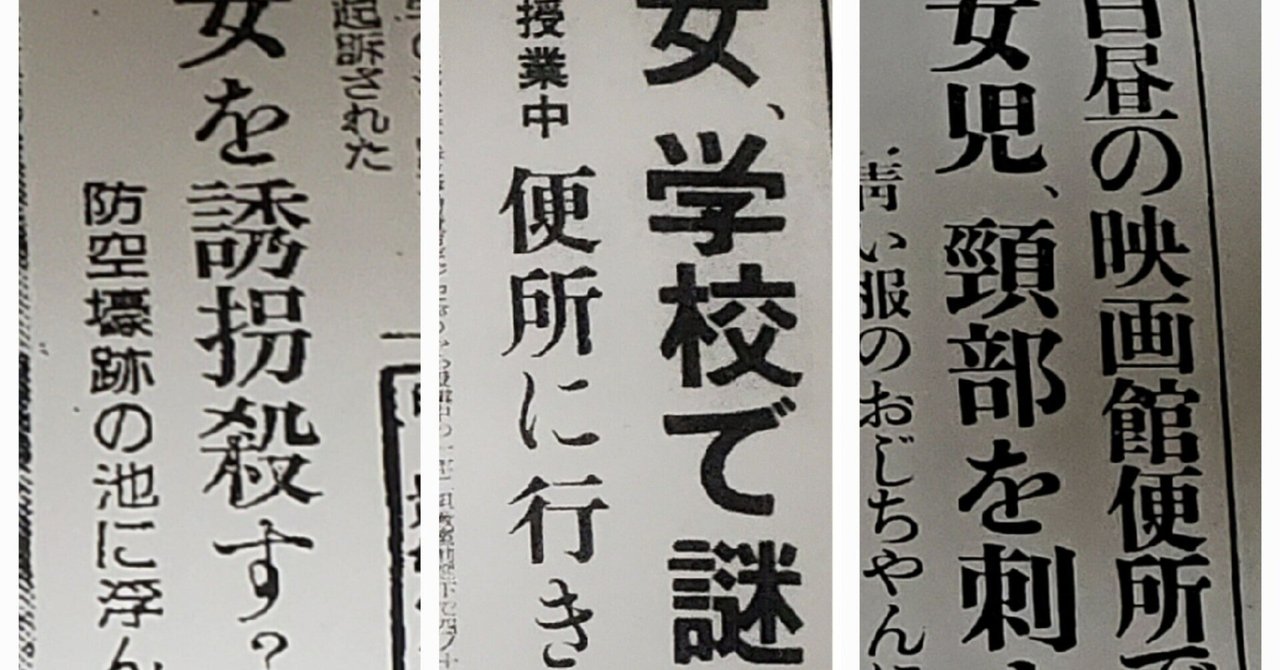 起訴された
女を誘拐殺す?
防空壕跡の池に浮ん
女、学校で謎
授業中
便所に行き
白昼の映画館便所で
女児、頸部を刺
青い服のおじちゃん